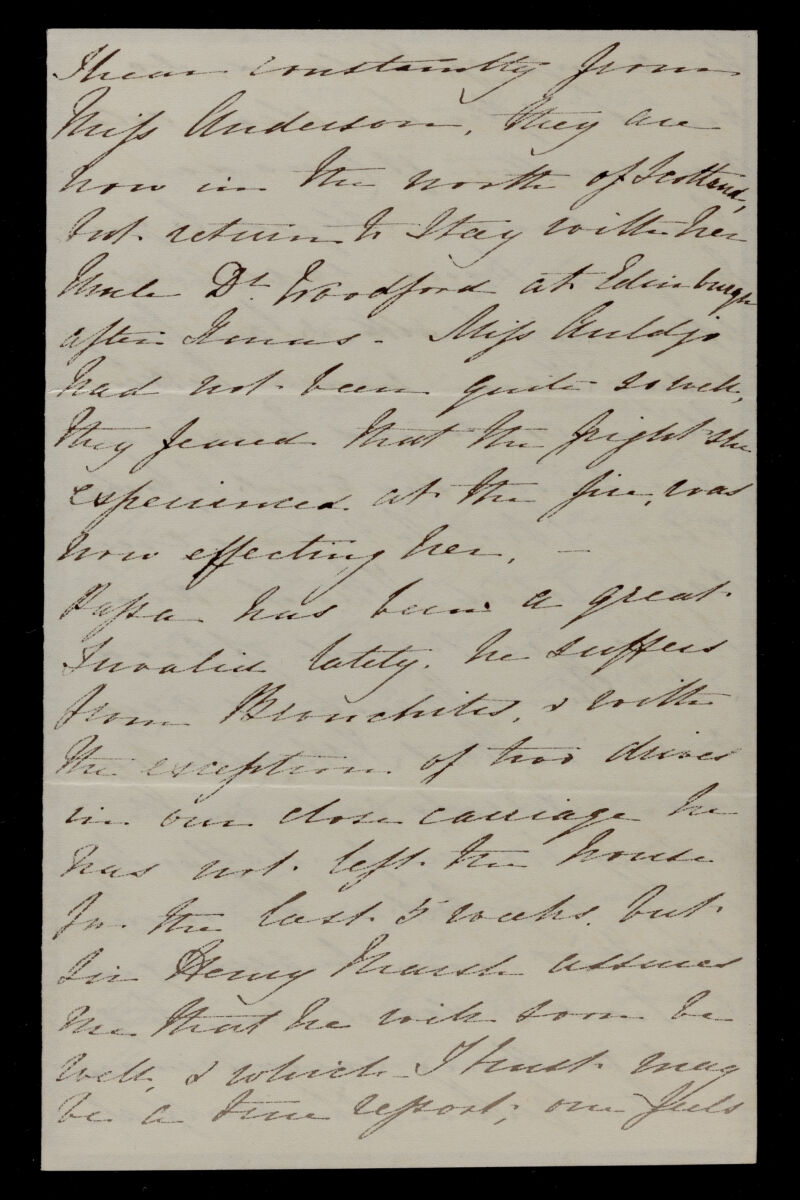 I hear constantly from
Miss Anderson, they are
now in the north of Scotland,
but return to stay with her
Uncle Dr. Woodford at Edinburgh
after Xmas - Miss Auldjo
had not been quite so well,
they feared that the fright she
experienced at the fire, was
now effecting her, —
Papa has been a great
Invalid lately. he suffers
from Bronchites, & with
the exception of two drives
in our close carriage he
has not left the house
for the last 5 weeks. but
Sir Henry Marsh assures
me that he will soon be
well, & which I trust may
be a true report, one feels